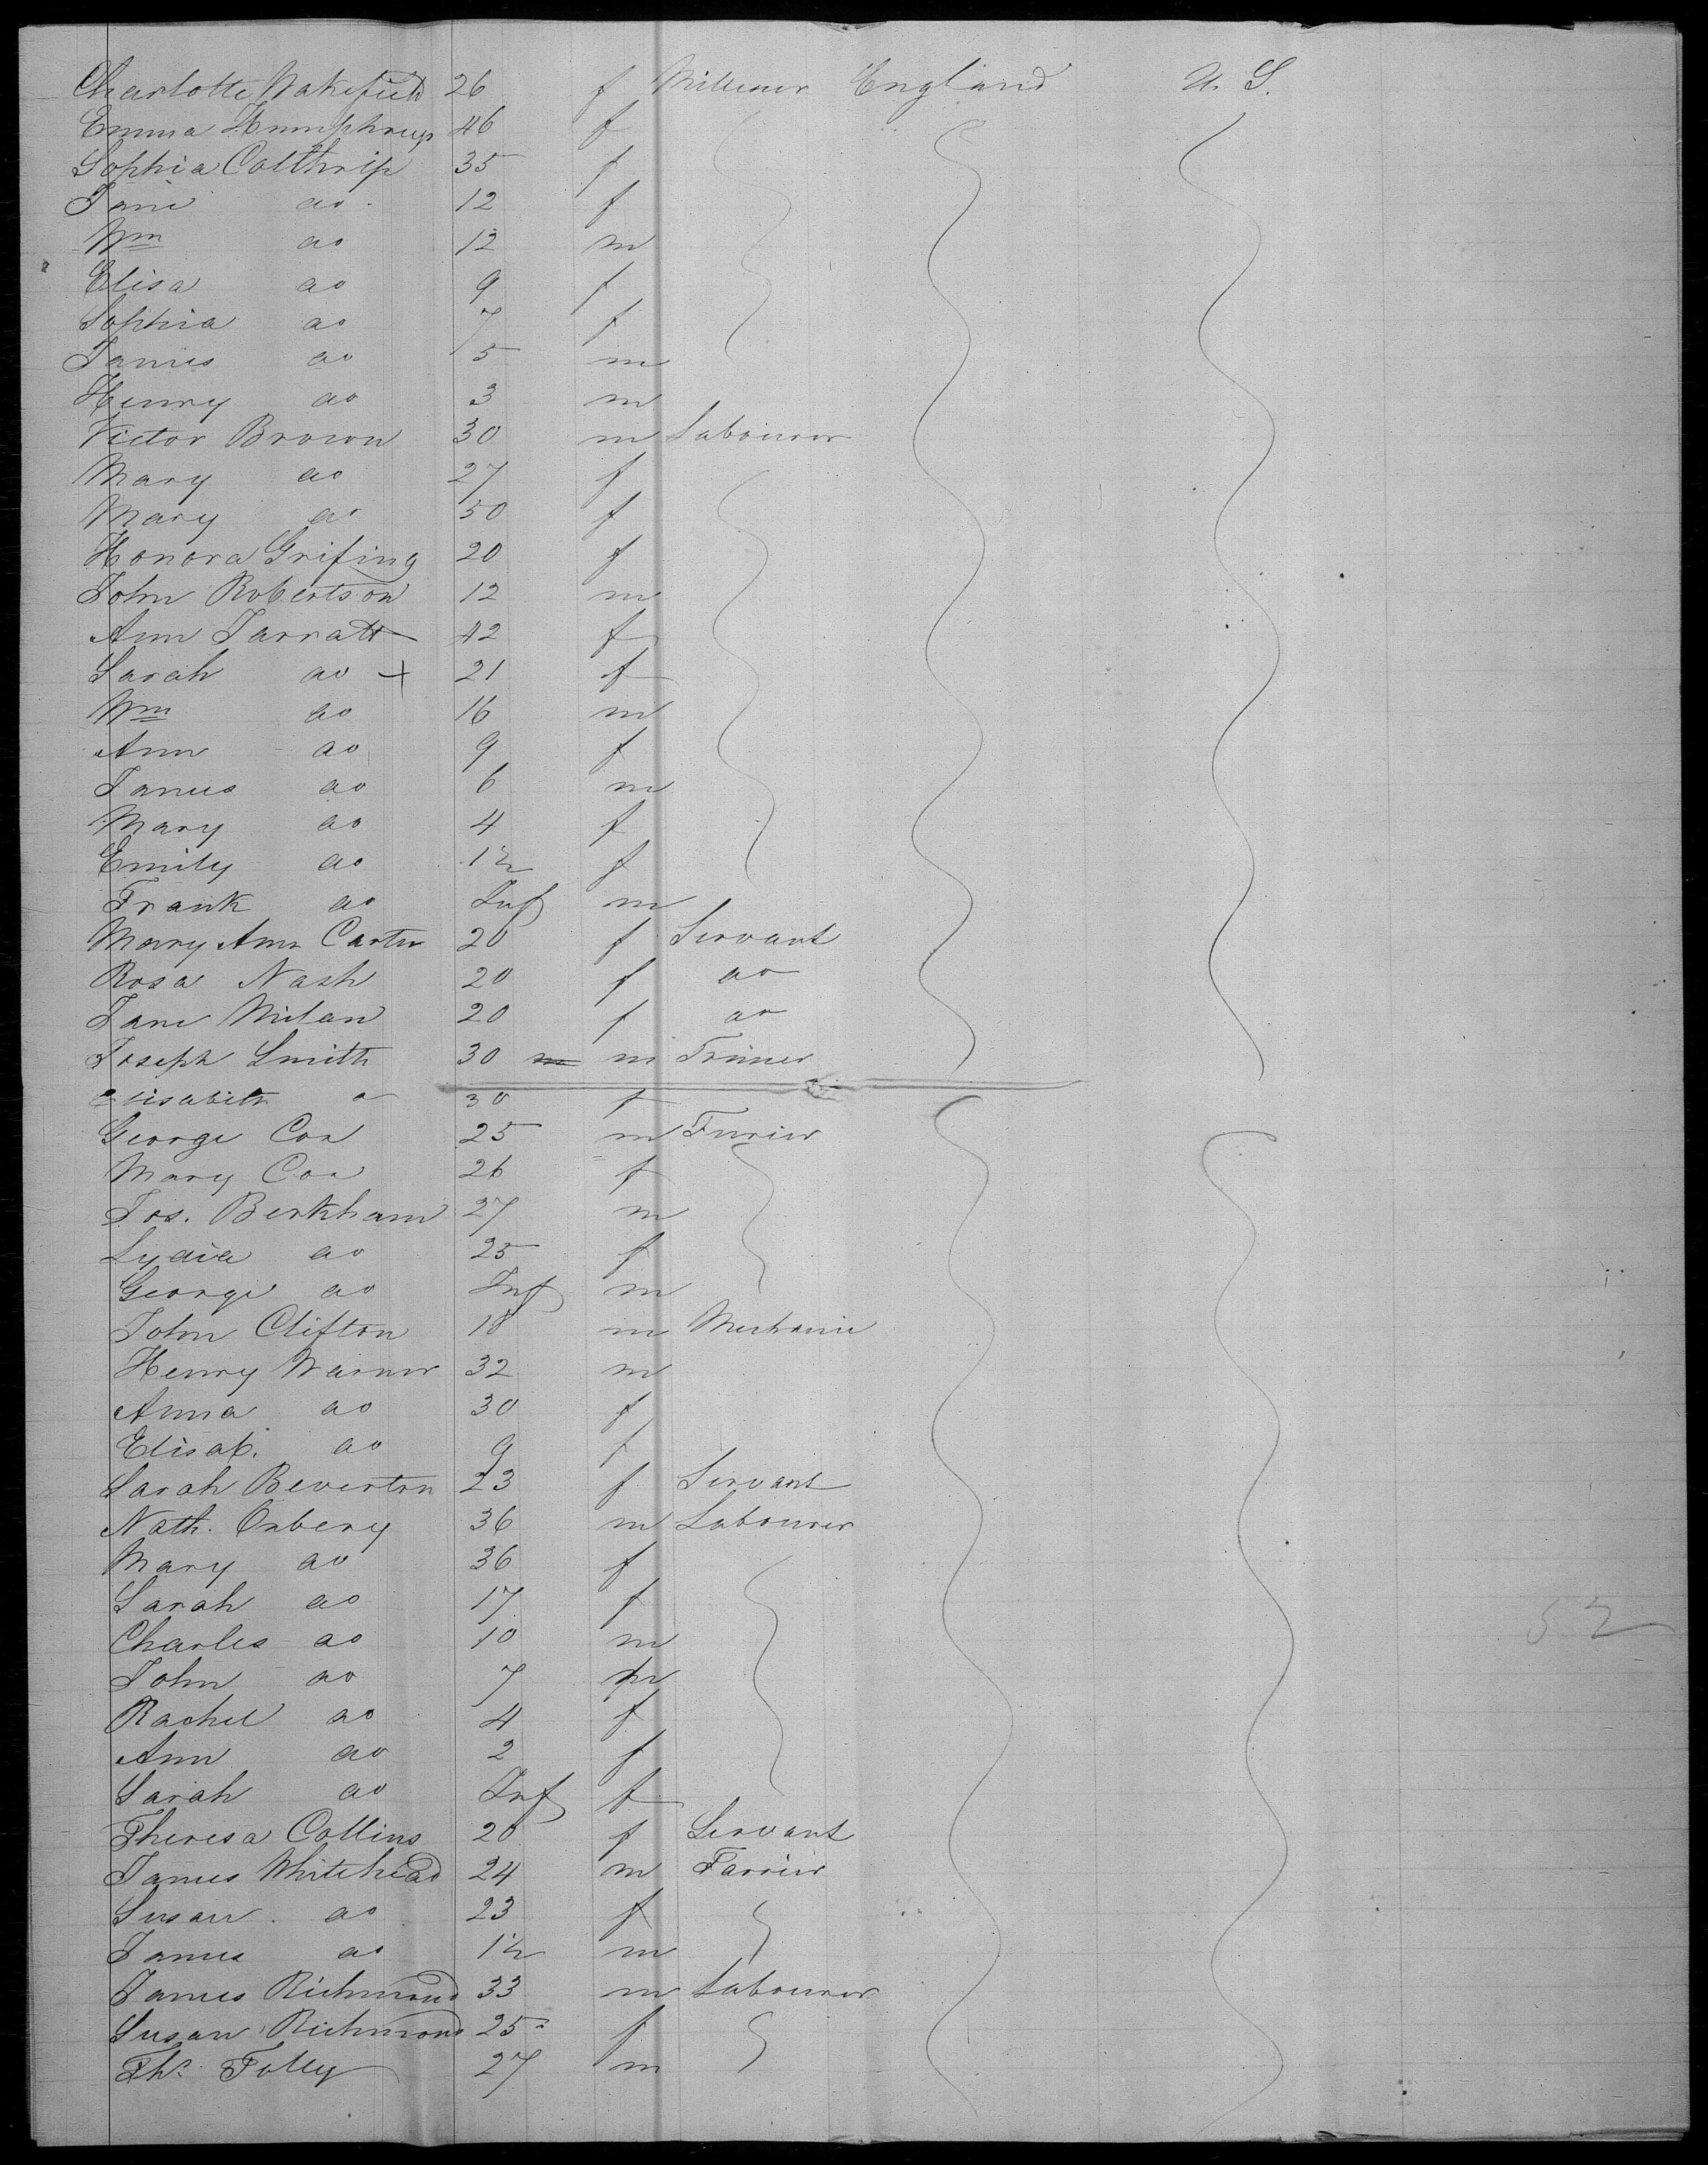 Charlotte Wakefield 26 f Milliner England U. S.
Emma Humphreys 46 f
Sophia Colthrip 35 f
Jane do 12 f
Wm do 12 m
Elisa do 9 f
Sophia do 7 f
James do 5 m
Henry do 3 m
Victor Brown 30 m Labourer
Mary do 27 f
Mary do 50 f
Honora Grifing 20 f
John Robertson 12 m
Ann Jarratt 42 f
Sarah do + 21 f
Wm do 16 m
Ann do 9 f
James do 6 m
Mary do 4 f
Emily do 1½ f
Frank do Inf m
Mary Ann Carter 20 f Servant
Rosa Nash 20 f do
Jane Milan 20 f do
Joseph Smith 30 m m
Elisabeth do 30 f
George Cox 25 m Furier
Mary Cox 26 f
Jos. Berkham 27 m
Lydia do 25 f
George do Inf m
John Clifton 18 m Mechanic
Henry Warner 32 m
Anna do 30 f
Elisab. do 9 f
Sarah Beverton 23 f Servant
Nath. Oxbery 36 m Labourer
Mary do 36 f
Sarah do 17 f
Charles do 10 m
John do 7 m
52
Rachel do 4 f
Ann do 2 f
Sarah do Inf f
Theresa Collins 20 f Servant
James Whitehead 24 m Farrier
Susan do 23 f
James do 1½ m
James Richmond 33 m Labourer
Susan Richmond 25 f
Ths. Folly 27 m